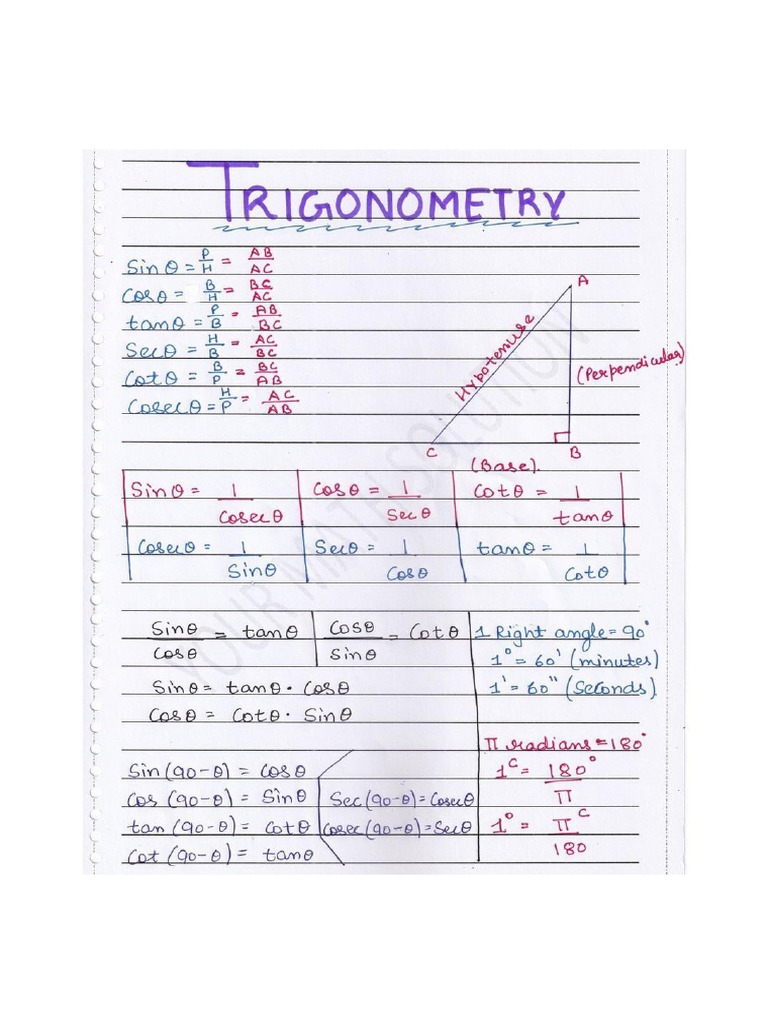 TRIGONOMETRY
Sin θ = P/H = AB/AC
Cos θ = B/H = BC/AC
tan θ = P/B = AB/BC
Sec θ = H/B = AC/BC
Cot θ = B/P = BC/AB
Cosec θ = H/P = AC/AB
A
Hypotenuse
(Perpendicular)
C
B
(Base).
Sin θ = 1/Cosec θ
Cos θ = 1/Sec θ
Cot θ = 1/tan θ
Cosec θ = 1/Sin θ
Sec θ = 1/Cos θ
tan θ = 1/Cot θ
Sin θ/Cos θ = tan θ
Cos θ/Sin θ = Cot θ
Sin θ = tan θ · Cos θ
Cos θ = Cot θ · Sin θ
1 Right angle = 90°
1° = 60' (minutes)
1' = 60" (Seconds).
Sin (90-θ) = Cos θ
Cos (90-θ) = Sin θ
tan (90-θ) = Cot θ
Cot (90-θ) = tan θ
Sec (90-θ) = Cosec θ
Cosec (90-θ) = Sec θ
π radians = 180°
1ᶜ = 180°/π
1° = πᶜ/180
YOUR MATH SOLUTION